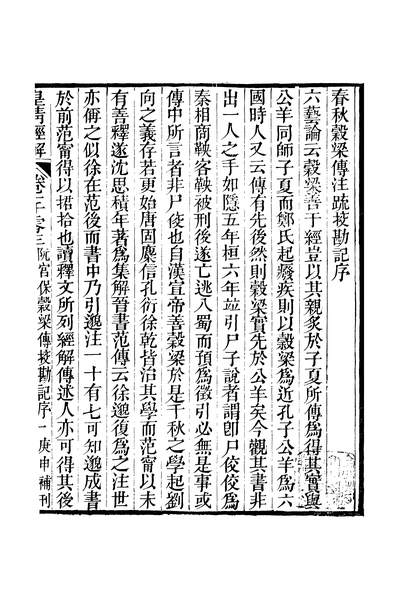 春秋穀梁傳注疏挍勘記序
六藝論云穀梁善于經豈以其親炙於子夏所傳為得其實與
公羊同師子夏而鄭氏起癈疾則以穀梁為近孔子公羊為六
國時人又云傳有先後然則穀梁實先於公羊矣今觀其書非
出一人之手如隱五年桓六年竝引尸子說者謂卽尸佼佼為
秦相商鞅客鞅被刑後遂亡逃入蜀而預為徵引必無是事或
傳中所言者非尸佼也自漢宣帝善穀梁於是千秋之學起劉
向之義存若更始唐固麋信孔衍徐乾皆治其學而范甯以未
有善釋遂沈思積年著為集解晉書范傳云徐邈復為之注世
亦偁之似徐在范後而書中乃引邈注一十有七可知邈成書
於前范甯得以捃拾也讀釋文所列經解傳述人亦可得其後
皇清經解 卷二千零三 阮宮保穀梁傳挍勘記序 一 庚申補刊